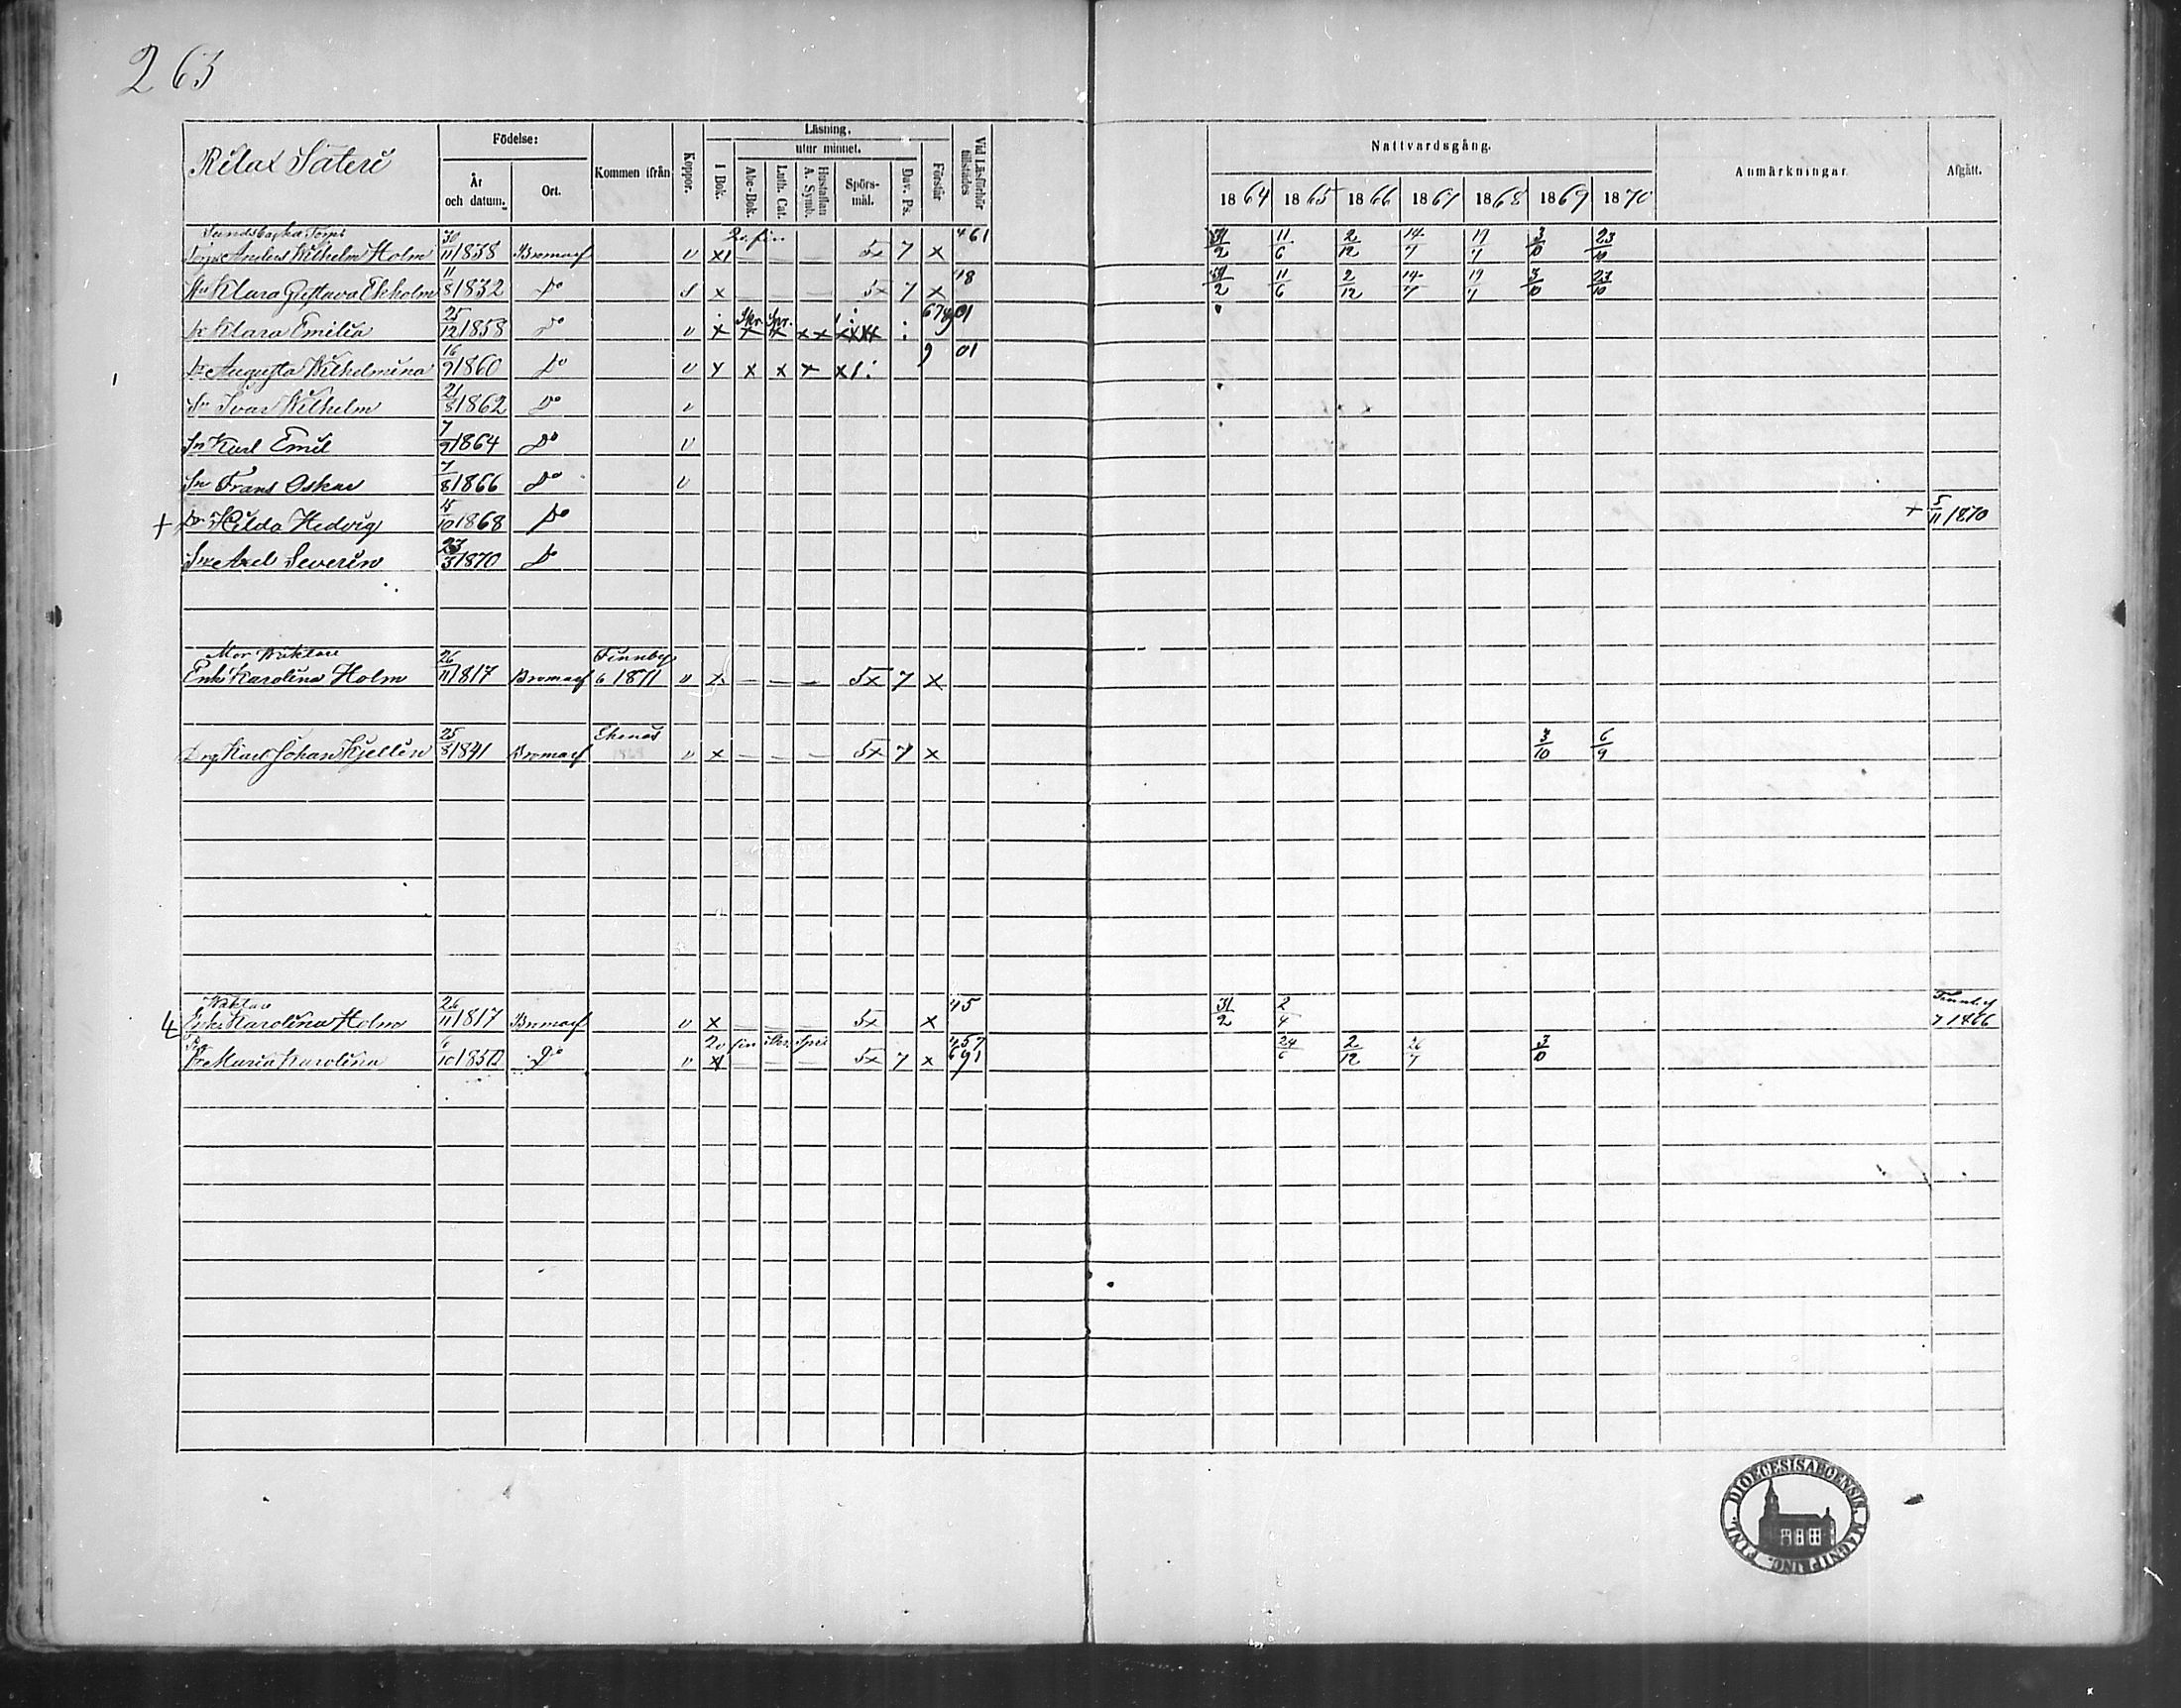 263
Rilax Säteri
Födelse:
År och datum.
Ort.
Kommen ifrån
Koppor.
Läsning.
utur minnet.
I Bok.
Abc-Bok.
Luth. Cat.
Hustaflan A. Symb.
Spörs-mål.
Dav. Ps.
Förstår
Vid Läsförhör tillstädes
Nattvardsgång.
1864 1865 1866 1867 1868 1869 1870
Anmärkningar
Afgått.
Anders Wilhelm Holm 30/11 1838 Bromarf v x1 5x 7 x 461 31/2 11/6 2/12 14/7 19/7 3/10 23/10
Hu Klara Gustava Ekholm 11/8 1832 Do s x 5x 7 x 48 31/2 11/6 2/12 14/7 19/7 3/10 23/10
Dr Klara Emilia 25/12 1858 Do v x
Dr Augusta Wilhelmina 16/9 1860 Do v x x x x x1: 9 01
Sn Ivar Wilhelm 21/8 1862 Do v
Sn Karl Emil 7/9 1864 Do v
Sn Frans Oskar 7/8 1866 Do v
+ Dr Hilda Hedvig 15/10 1868 Do + 5/11 1870
Sn Axel Severin 23/3 1870 Do
Mor Waktare Finnby
Enk. Karolina Holm 26/11 1817 Bromarf 6 1871 v x – – – 5x 7 x
Ekenäs
Drg Karl Johan Kjellin 25/8 1841 Bromarf v x – – – 5x 7 x 3/10 6/9
Waktare Finnby
4 Enk. Karolina Holm 26/11 1817 Bromarf v x 5x x 45 31/2 2/4 7 1866
Dr Maria Karolina 6/10 1850 Do v x1 5x 7 x 24/6 2/12 26/7 3/10
DIOECESIS ABOENSIS. MAGNI PRINC. FINL.